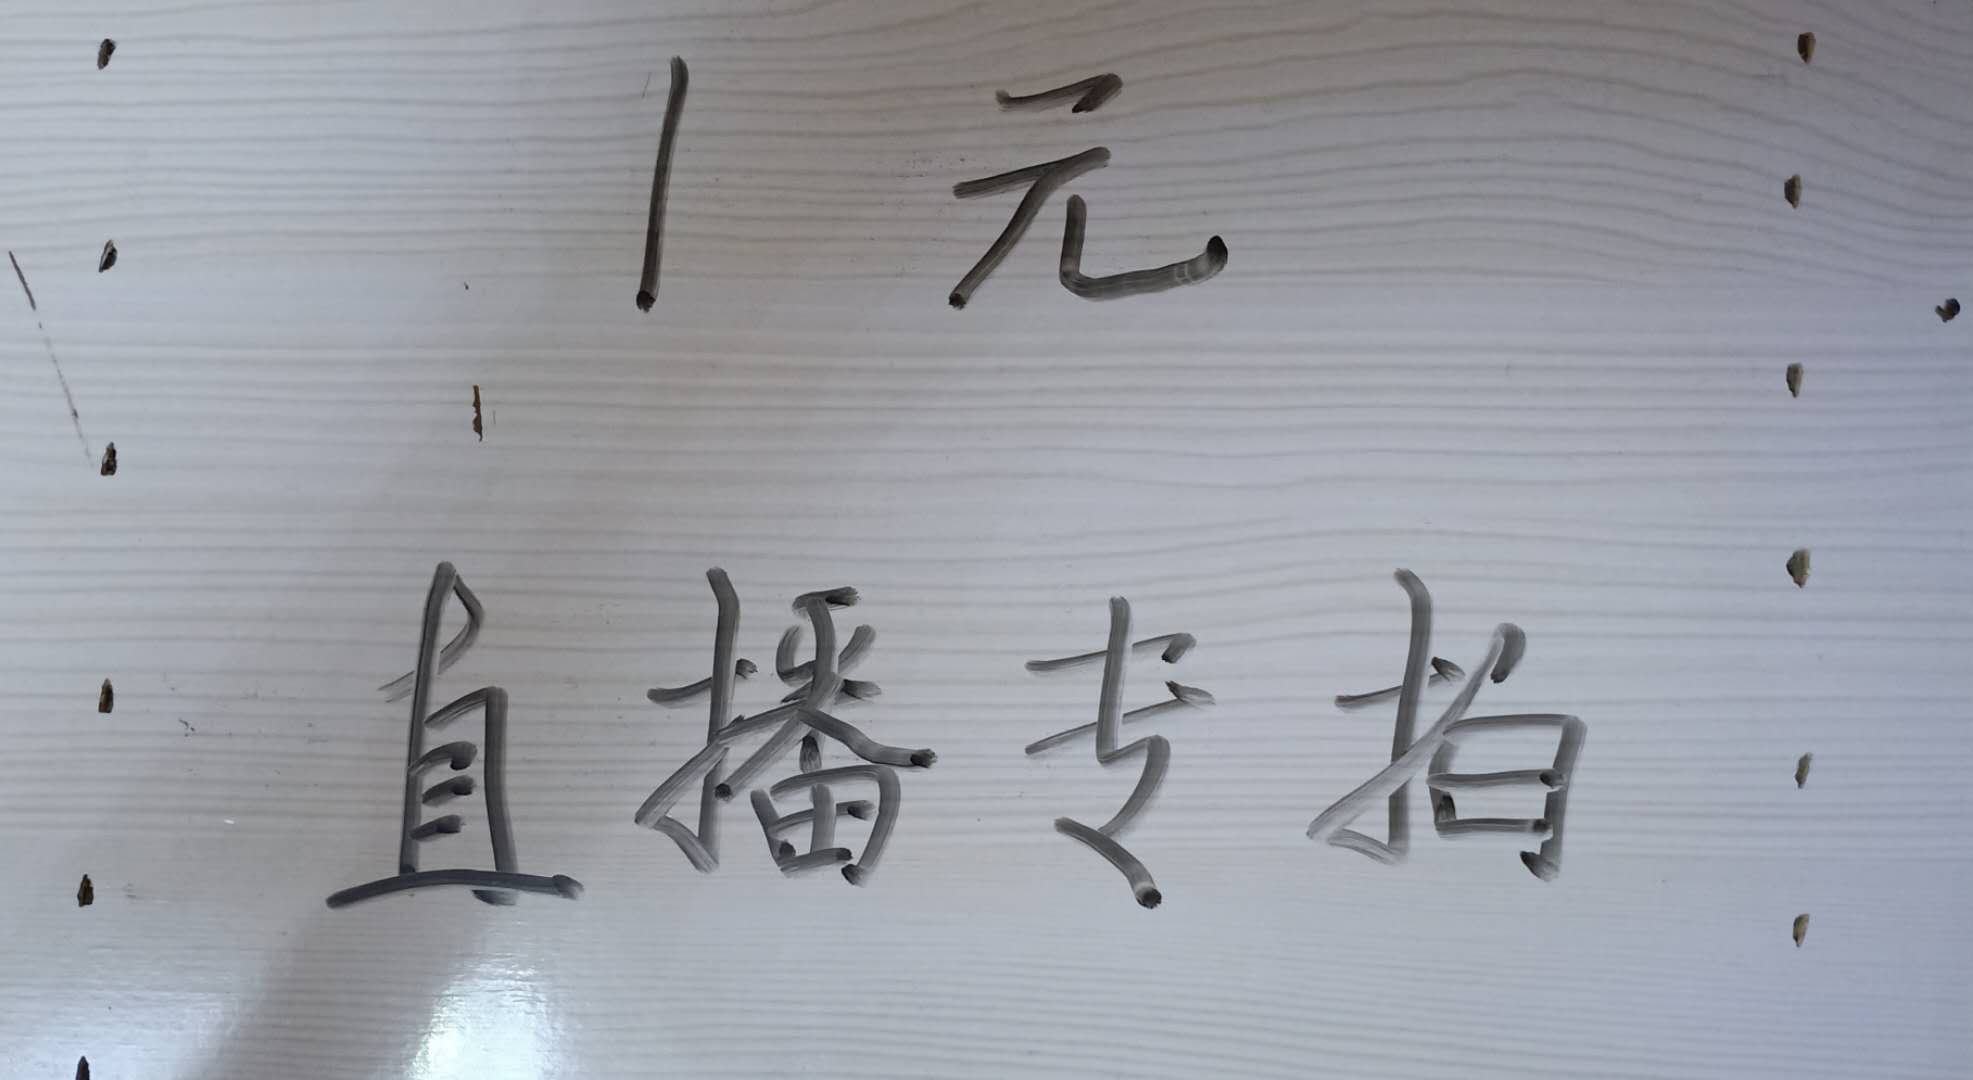 1元
直播专拍